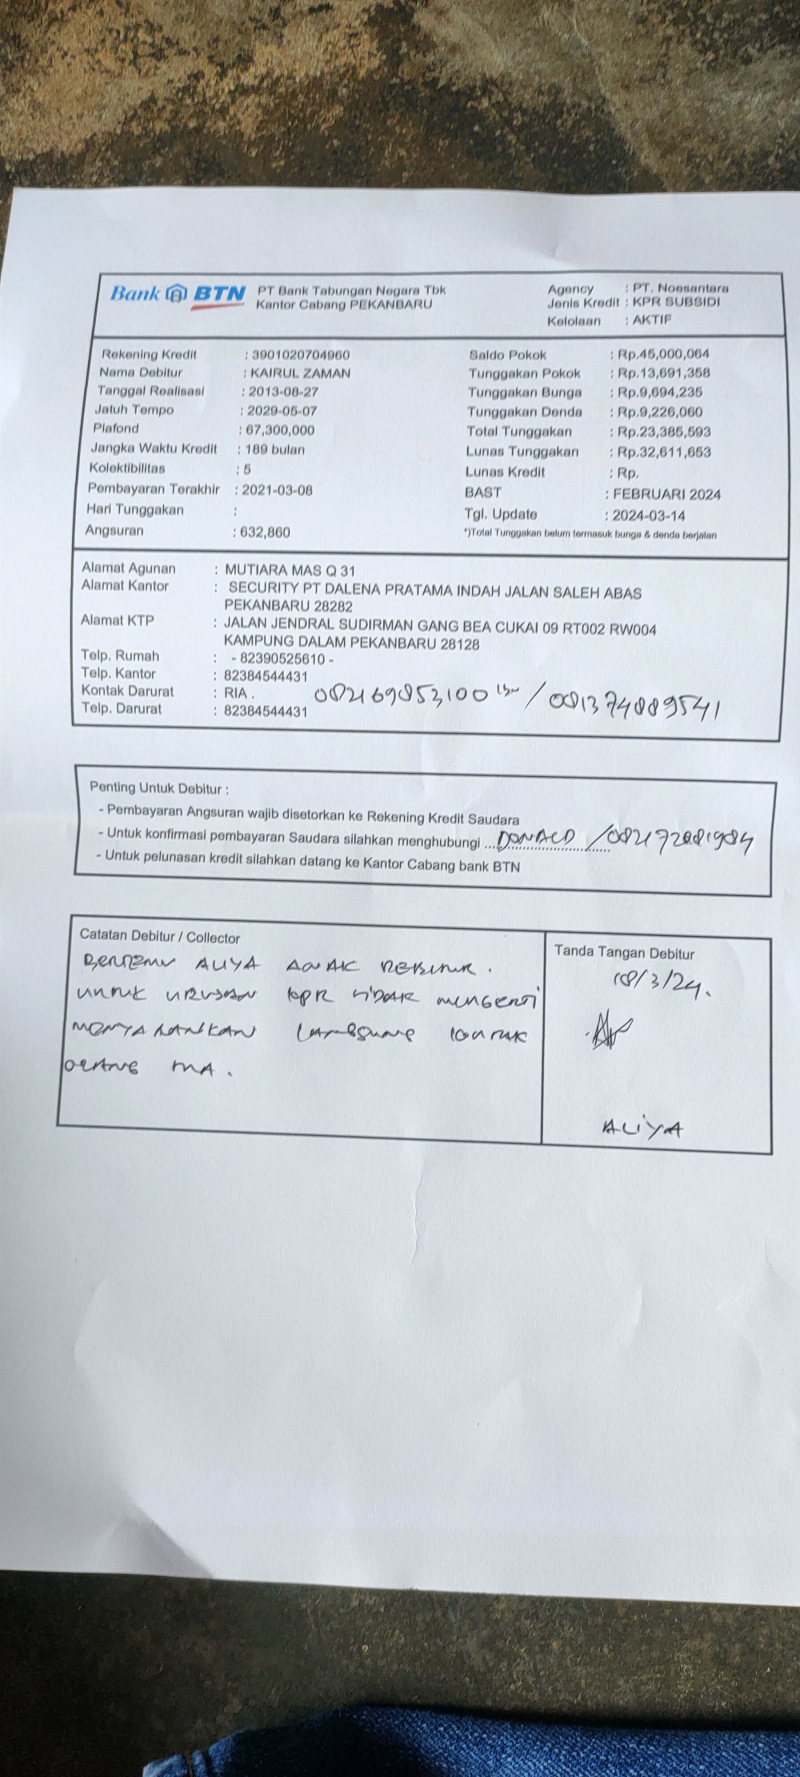 Bank BTN PT Bank Tabungan Negara Tbk
Kantor Cabang PEKANBARU
Agency : PT. Noesantara
Jenis Kredit : KPR SUBSIDI
Kelolaan : AKTIF
Rekening Kredit : 3901020704960
Nama Debitur : KAIRUL ZAMAN
Tanggal Realisasi : 2013-08-27
Jatuh Tempo : 2029-05-07
Plafond : 67,300,000
Jangka Waktu Kredit : 189 bulan
Kolektibilitas : 5
Pembayaran Terakhir : 2021-03-08
Hari Tunggakan :
Angsuran : 632,860
Saldo Pokok : Rp.45,000,064
Tunggakan Pokok : Rp.13,691,358
Tunggakan Bunga : Rp.9,694,235
Tunggakan Denda : Rp.9,226,060
Total Tunggakan : Rp.23,385,593
Lunas Tunggakan : Rp.32,611,653
Lunas Kredit : Rp.
BAST : FEBRUARI 2024
Tgl. Update : 2024-03-14
*)Total Tunggakan belum termasuk bunga & denda berjalan
Alamat Agunan : MUTIARA MAS Q 31
Alamat Kantor : SECURITY PT DALENA PRATAMA INDAH JALAN SALEH ABAS
PEKANBARU 28282
Alamat KTP : JALAN JENDRAL SUDIRMAN GANG BEA CUKAI 09 RT002 RW004
KAMPUNG DALAM PEKANBARU 28128
Telp. Rumah : - 82390525610 -
Telp. Kantor : 82384544431
Kontak Darurat : RIA . 082169853100 / 081374889541
Telp. Darurat : 82384544431
Penting Untuk Debitur :
- Pembayaran Angsuran wajib disetorkan ke Rekening Kredit Saudara
- Untuk konfirmasi pembayaran Saudara silahkan menghubungi ...DONALD /082172881984
- Untuk pelunasan kredit silahkan datang ke Kantor Cabang bank BTN
Catatan Debitur / Collector
BERTEMU ALIYA ANAK DEBITUR .
UNTUK URUSAN KPR TIDAK MENGERTI
LANGSUNG KONTAK
ORANG
Tanda Tangan Debitur
18/3/24.
ALIYA